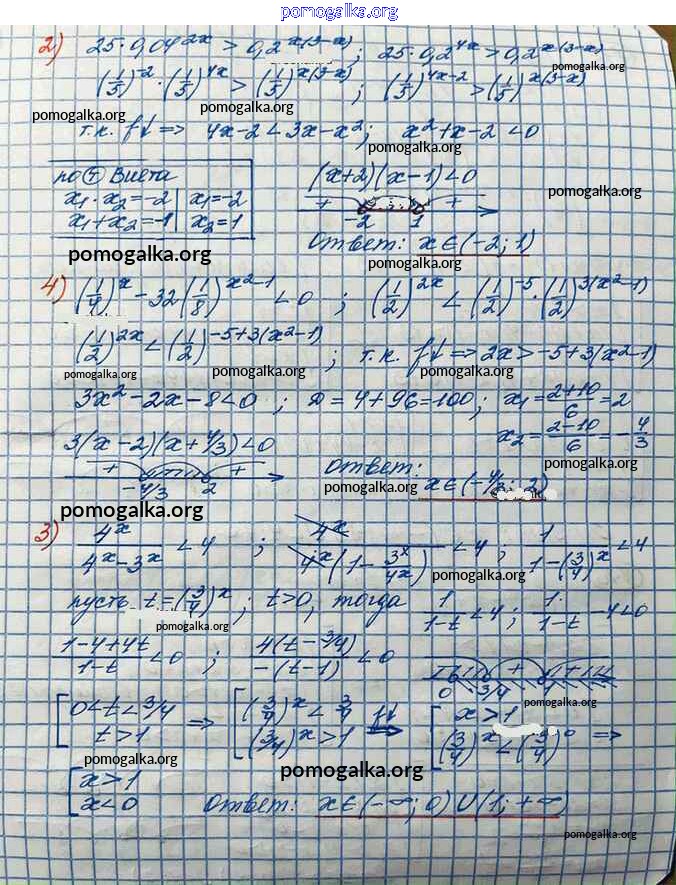 pomogalka.org
2) 25·0,04^2x > 0,2^x(3-x); 25·0,2^4x > 0,2^x(3-x)
pomogalka.org
(1/5)^-2 · (1/5)^4x > (1/5)^x(3-x) ; (1/5)^4x-2 > (1/5)^x(3-x)
pomogalka.org pomogalka.org pomogalka.org
т.к. f↓ => 4x-2 < 3x-x²; x²+x-2 < 0
pomogalka.org
по Т Виета (x+2)(x-1) < 0
pomogalka.org
x₁·x₂=-2 | x₁=-2 + + 
x₁+x₂=-1 | x₂=1 -2 1
Ответ: x∈(-2; 1)
pomogalka.org pomogalka.org
4) (1/4)^x - 32(1/8)^x²-1 < 0 ; (1/2)^2x < (1/2)^-5 · (1/2)^3(x²-1)
pomogalka.org
(1/2)^2x < (1/2)^-5+3(x²-1) ; т.к. f↓ => 2x > -5+3(x²-1)
pomogalka.org pomogalka.org pomogalka.org
3x²-2x-8<0 ; D=4+96=100; x₁=(2+10)/6=2
x₂=(2-10)/6=-4/3
3(x-2)(x+4/3)<0
pomogalka.org
+ + Ответ:
-4/3 2 x∈(-4/3; 2)
pomogalka.org
pomogalka.org
3) 4^x/(4^x-3^x) < 4 ; 4^x/(4^x(1-3^x/4^x)) < 4 ; 1/(1-(3/4)^x) < 4
pomogalka.org
пусть t=(3/4)^x ; t>0, тогда 1/(1-t) < 4 ; 1/(1-t) - 4 < 0
pomogalka.org
(1-4+4t)/(1-t) < 0 ; 4(t-3/4)/(-(t-1)) < 0
0 3/4 1
pomogalka.org
[0<t<3/4 => [(3/4)^x < 3/4 f↓ => [x>1
t>1 (3/4)^x > 1 (3/4)^x < (3/4)^0 =>
pomogalka.org pomogalka.org
[x>1
x<0 Ответ: x∈(-∞; 0)∪(1; +∞)
pomogalka.org